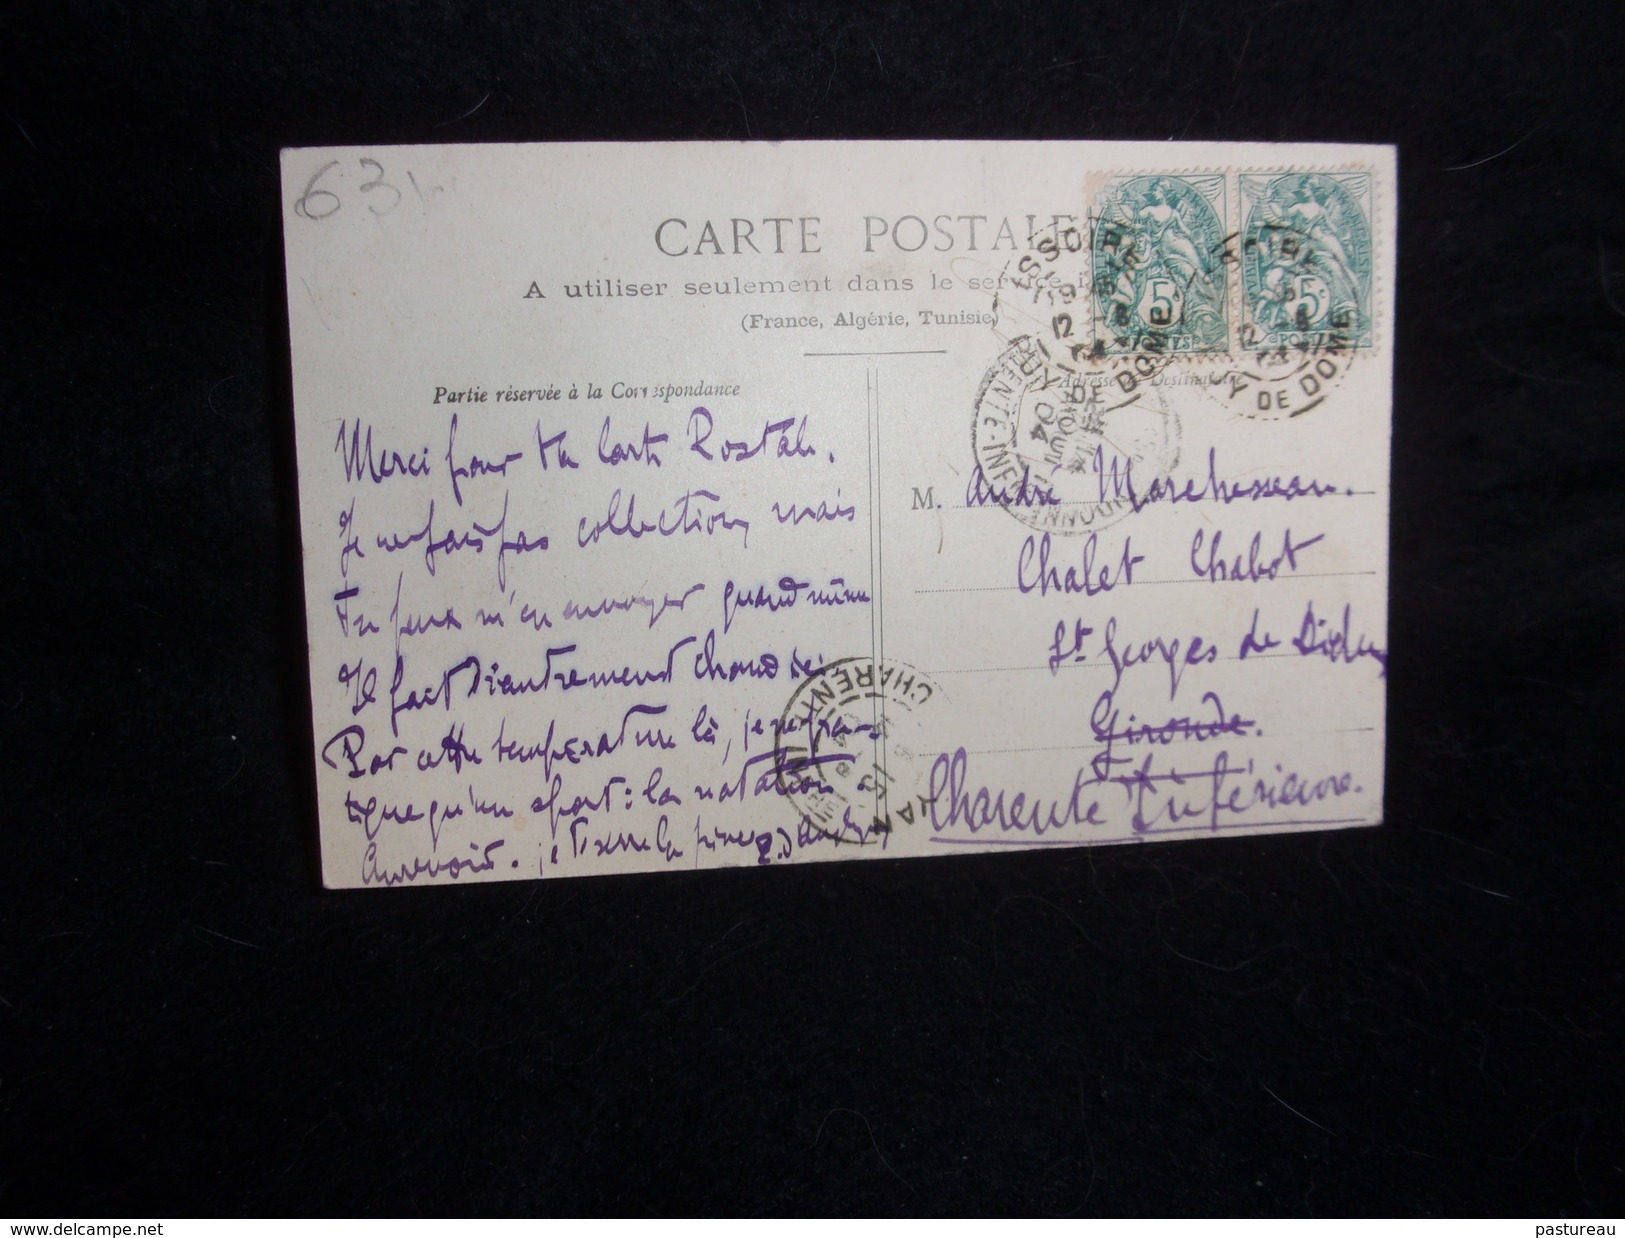 63
CARTE POSTALE
A utiliser seulement dans le service
(France, Algérie, Tunisie)
Partie réservée à la Correspondance
Adresse du Destinataire
Merci pour ta Carte Postale.
Je ne fais pas collection, mais
Tu peux m'en envoyer quand même
Il fait diantrement chaud ici.
Par cette température là, je ne pra-
tique qu'un sport: la natation.
Au revoir. je te serre la pince
M. André Marchesseau.
Chalet Chabot
St Georges de Didonne
Gironde.
Charente Inférieure.
5c
POSTES
5c
POSTES
ISSOIRE
PUY DE DOME
12 -8
04
PUY DE DOME
12 -8
04
CHARENTE-INFRE
AOUT
04
CHARENTE
15
ROYAN
www.delcampe.net
pastureau